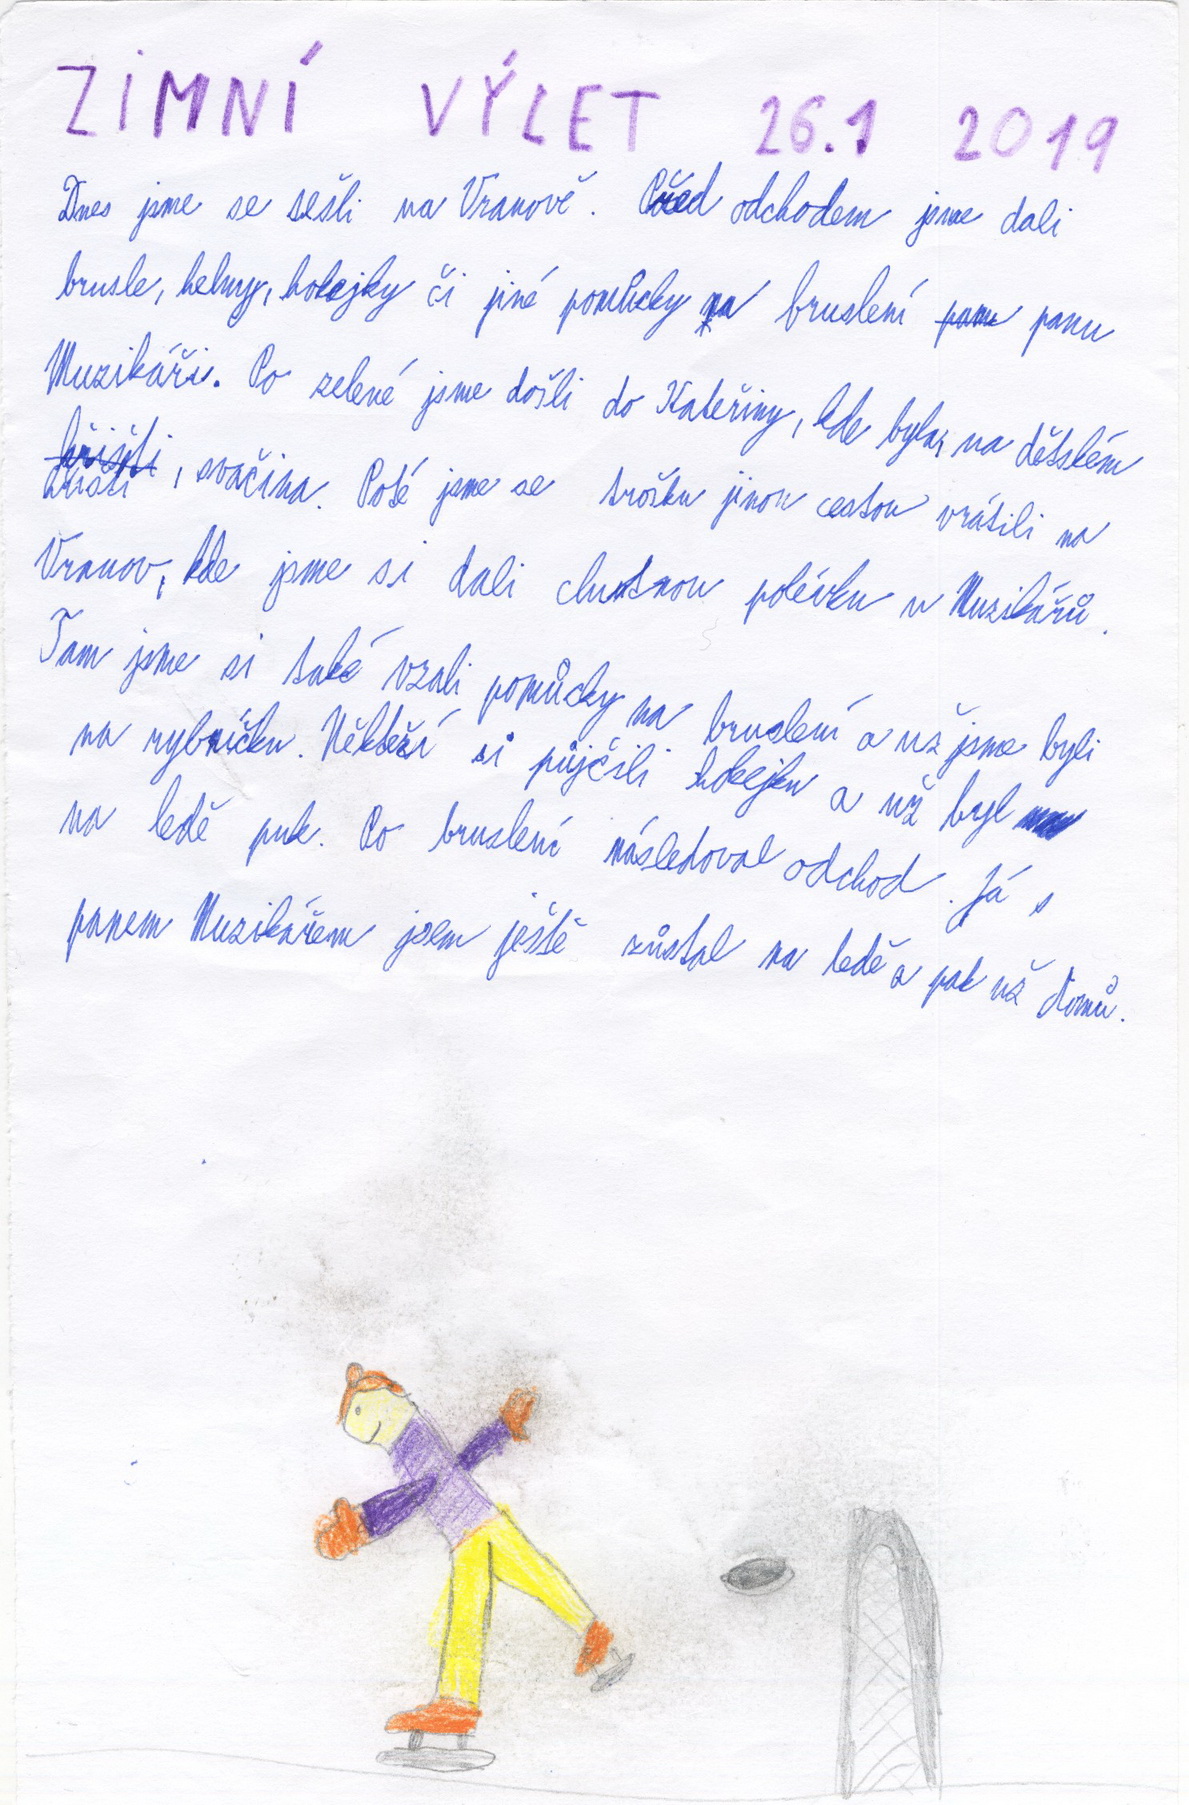 ZIMNÍ VÝLET 26.1 2019
Dnes jsme se sešli na Vranově. Před odchodem jsme dali
brusle, helmy, hokejky či jiné pomůcky na bruslení panu panu
Muzikáři. Po zelené jsme došli do Kateřiny, kde byla, na dětském
hřišti
hřišti, svačina. Poté jsme se trošku jinou cestou vrátili na
Vranov, kde jsme si dali chutnou polévku u Muzikářů.
Tam jsme si také vzali pomůcky na bruslení a už jsme byli
na rybníčku. Někteří si půjčili hokejku a už byl
na ledě puk. Po bruslení následoval odchod. Já s
panem Muzikářem jsem ještě zůstal na ledě a pak už domů.